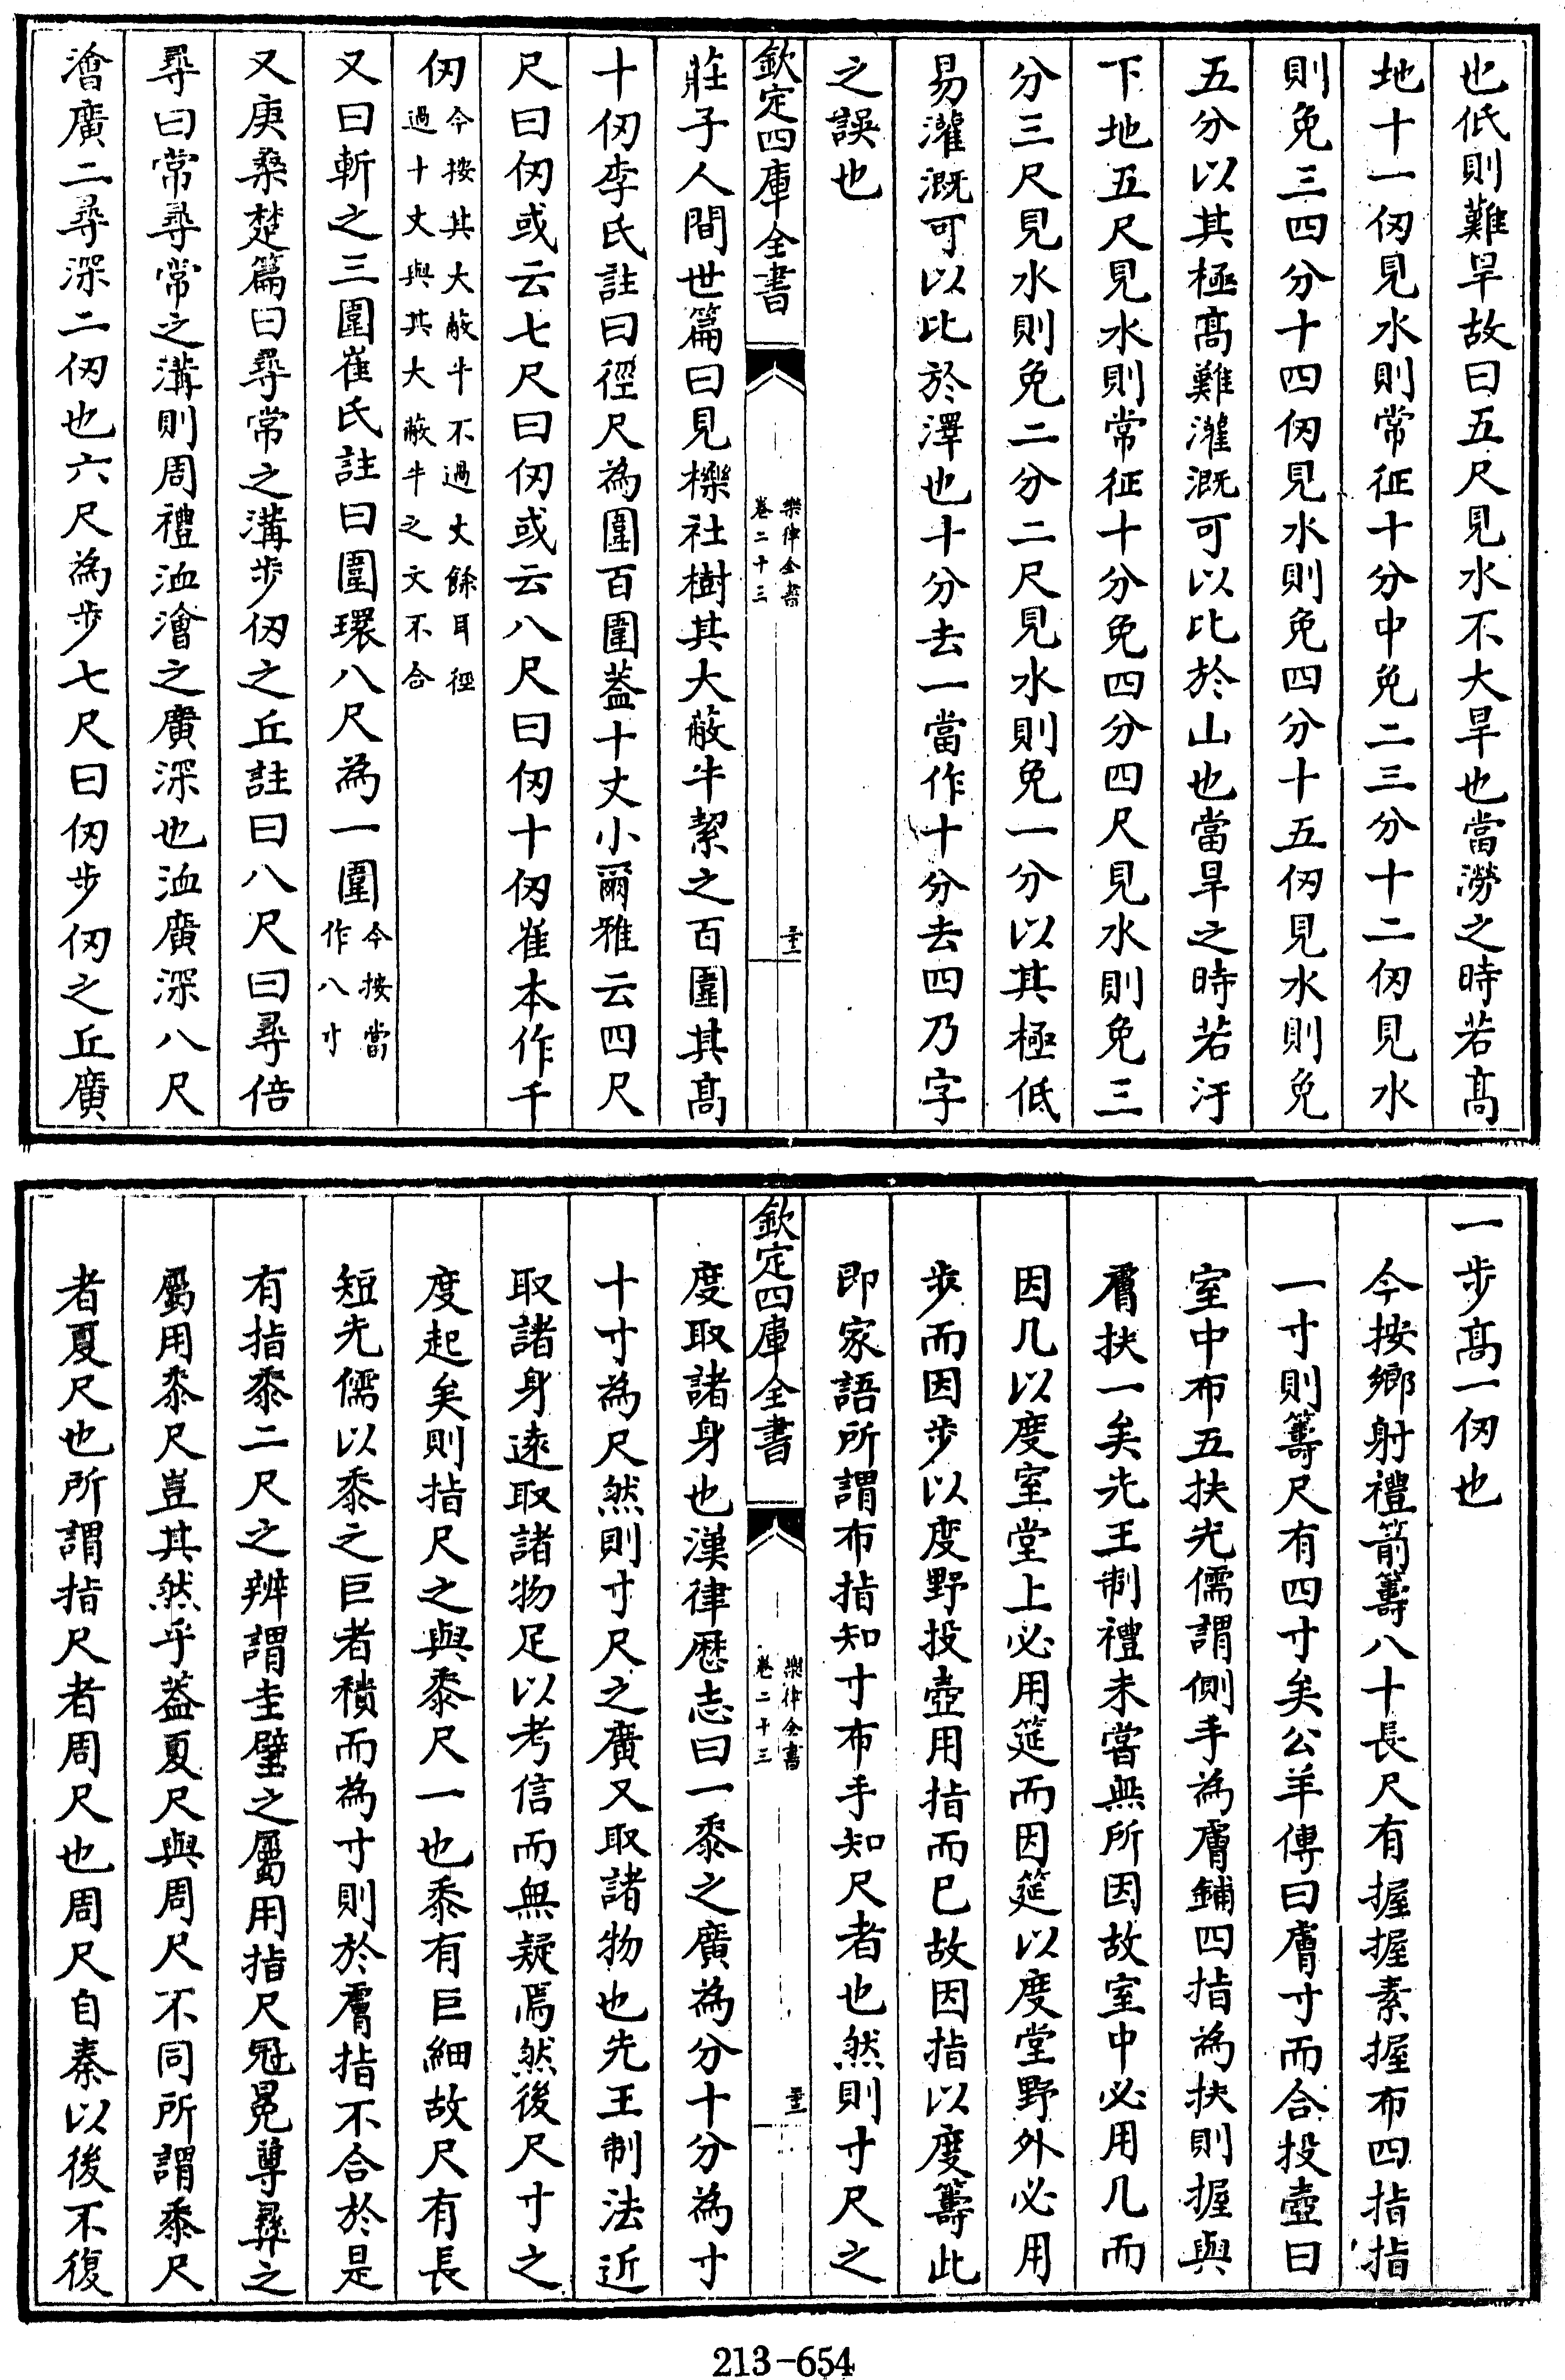 也低則難旱故曰五尺見水不大旱也當澇之時若髙
地十一仞見水則常征十分中免二三分十二仞見水
則免三四分十四仞見水則免四分十五仞見水則免
五分以其極髙難灌溉可以比於山也當旱之時若汙
下地五尺見水則常征十分免四分四尺見水則免三
分三尺見水則免二分二尺見水則免一分以其極低
易灌溉可以比於澤也十分去一當作十分去四乃字
之誤也
欽定四庫全書
樂律全書
卷二十三
三十一
莊子人間世篇曰見櫟社樹其大蔽牛絜之百圍其髙
十仞李氏註曰徑尺為圍百圍蓋十丈小爾雅云四尺
尺曰仞或云七尺曰仞或云八尺曰仞十仞崔本作千
仞今按其大蔽牛不過丈餘耳徑
過十丈與其大蔽牛之文不合
又曰斬之三圍崔氏註曰圍環八尺為一圍今按當
作八寸
又庚桑楚篇曰尋常之溝步仞之丘註曰八尺曰尋倍
尋曰常尋常之溝則周禮洫澮之廣深也洫廣深八尺
澮廣二尋深二仞也六尺為步七尺曰仞步仞之丘廣
一步髙一仞也
今按鄉射禮箭籌八十長尺有握握素握布四指指
一寸則籌尺有四寸矣公羊傳曰膚寸而合投壺曰
室中布五扶先儒謂側手為膚鋪四指為扶則握與
膚扶一矣先王制禮未嘗無所因故室中必用几而
因几以度室堂上必用筵而因筵以度堂野外必用
步而因步以度野投壺用指而已故因指以度籌此
即家語所謂布指知寸布手知尺者也然則寸尺之
欽定四庫全書
樂律全書
卷二十三
三十二
度取諸身也漢律歴志曰一黍之廣為分十分為寸
十寸為尺然則寸尺之廣又取諸物也先王制法近
取諸身遠取諸物足以考信而無疑焉然後尺寸之
度起矣則指尺之與黍尺一也黍有巨細故尺有長
短先儒以黍之巨者積而為寸則於膚指不合於是
有指黍二尺之辨謂圭璧之屬用指尺冠冕尊彞之
屬用黍尺豈其然乎蓋夏尺與周尺不同所謂黍尺
者夏尺也所謂指尺者周尺也周尺自秦以後不復
213-654